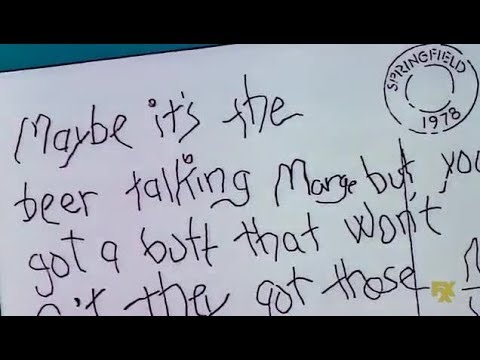 SPRINGFIELD
1978
Maybe it's the
beer talking Marge but you
got a butt that won't
they got those
FX